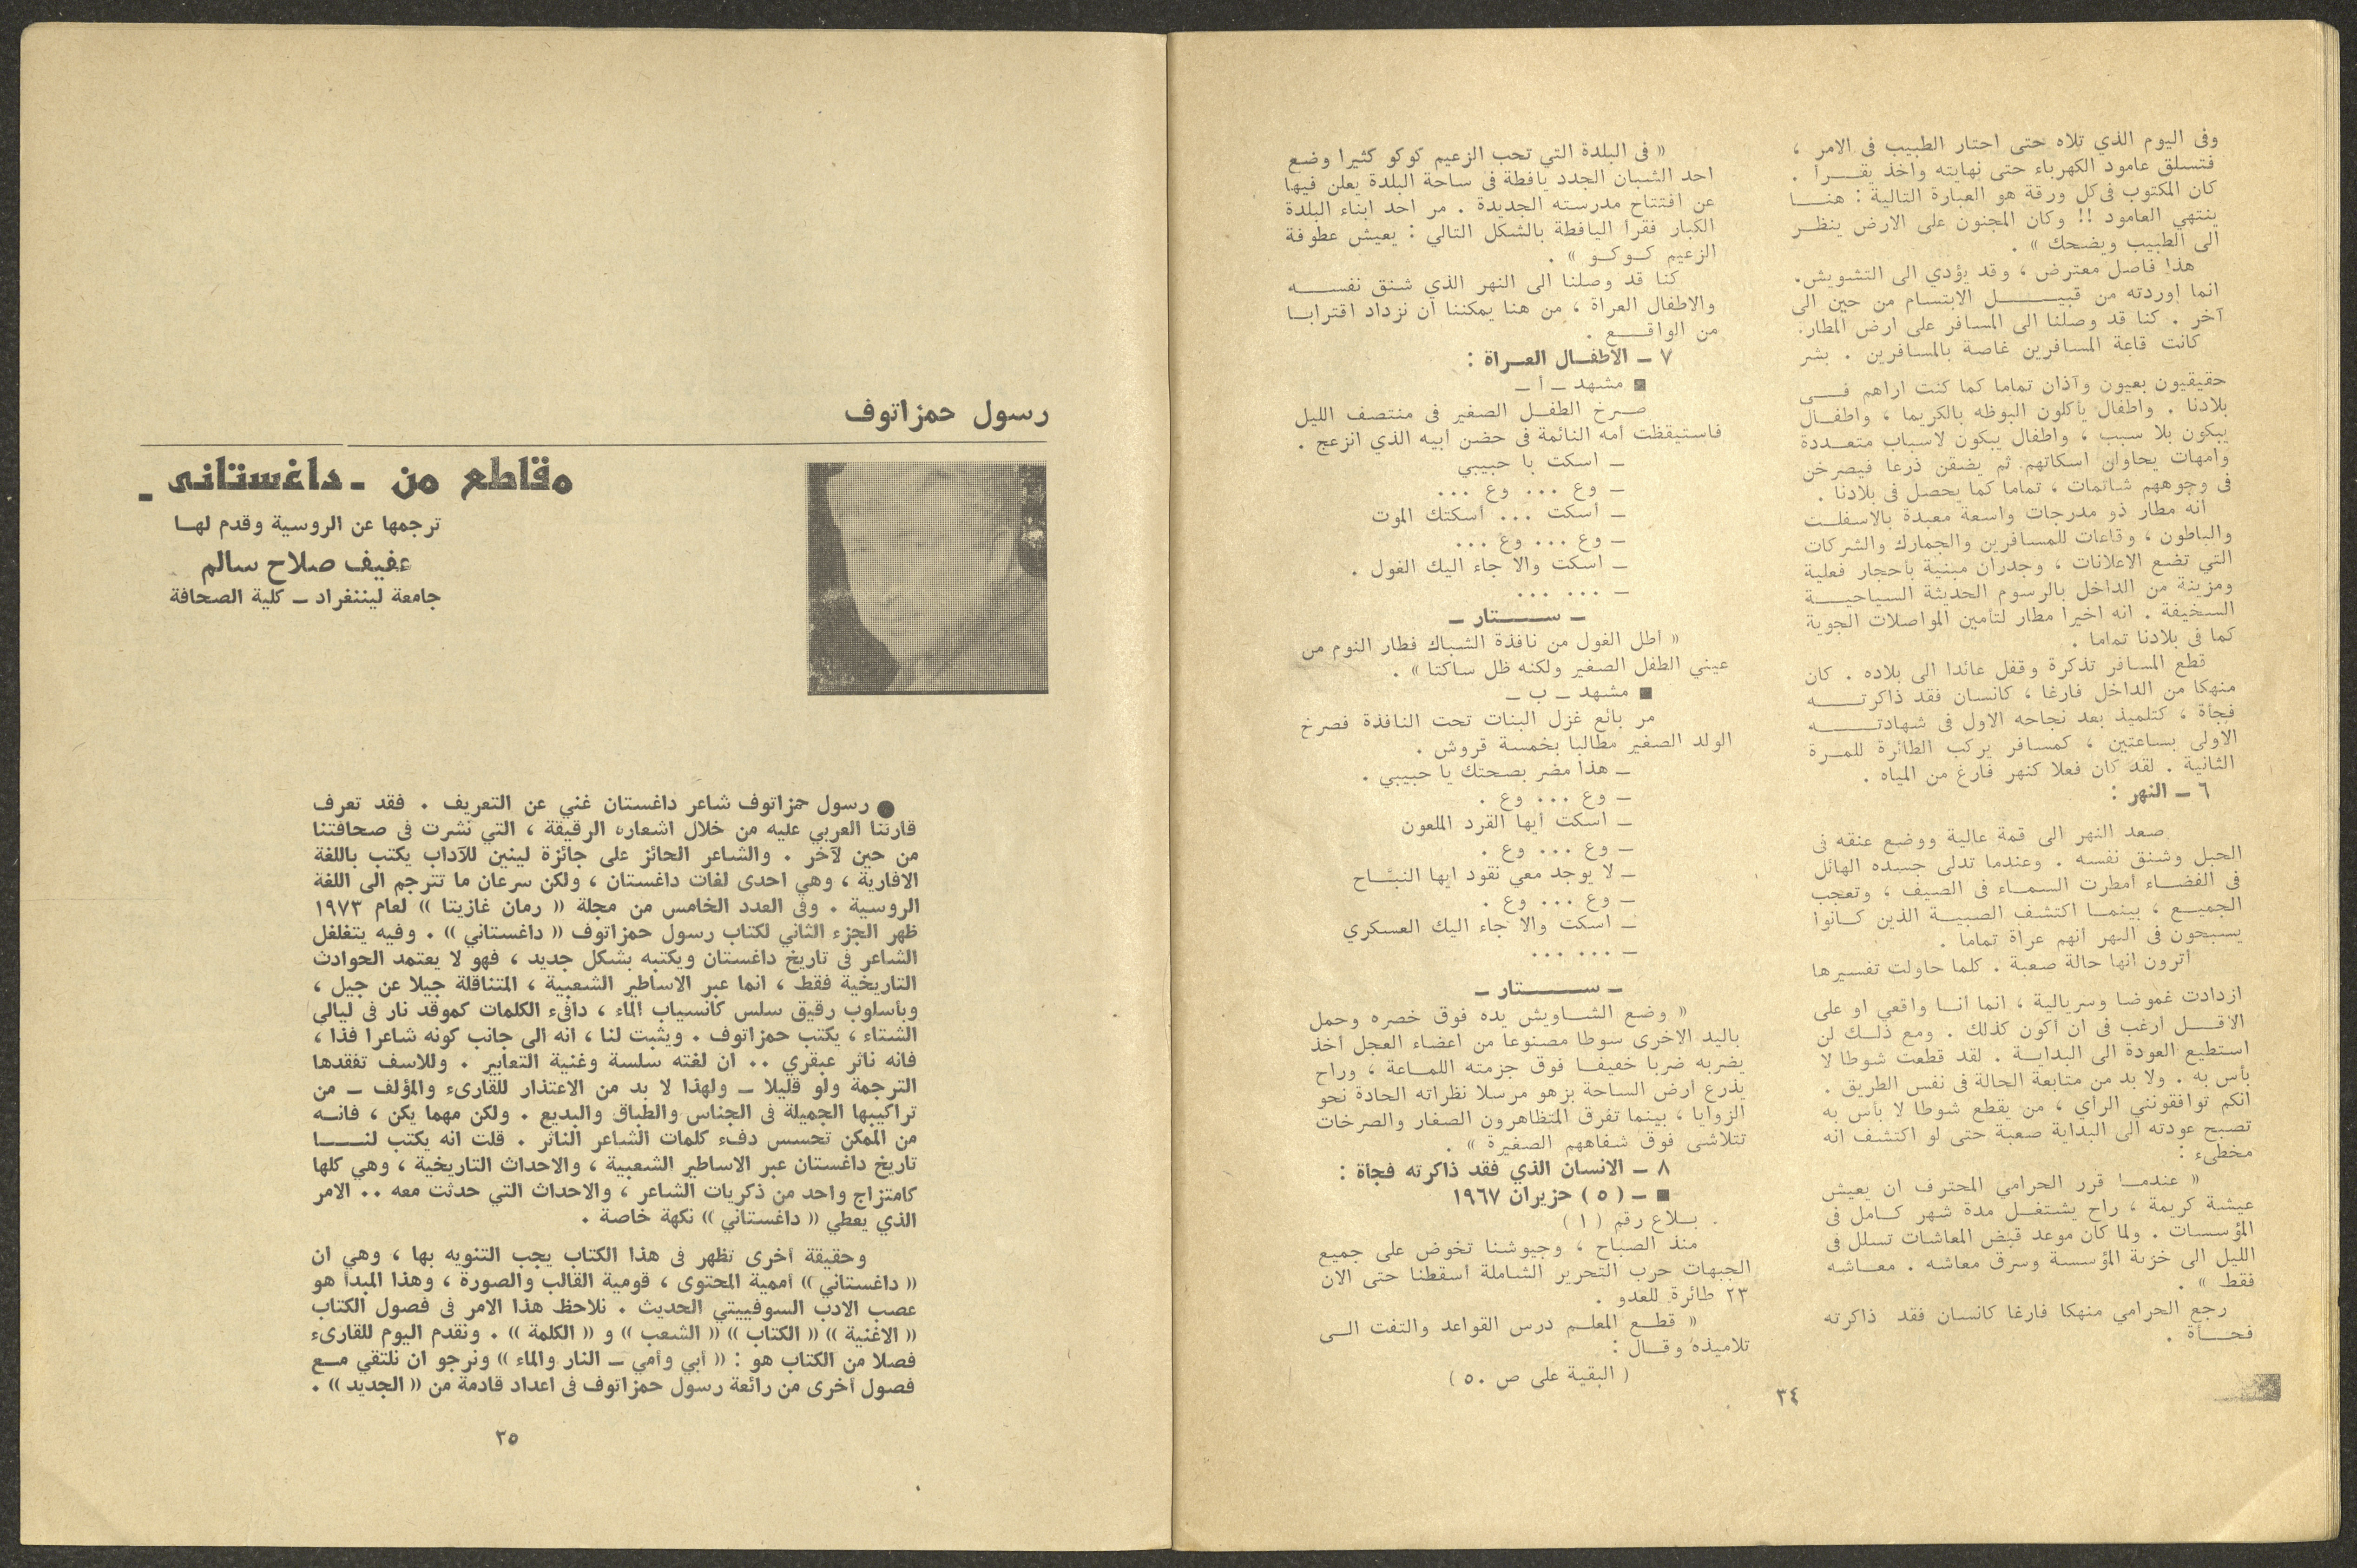 وفى اليوم الذي تلاه حتى احتار الطبيب فى الامر ،
فتسلق عامود الكهرباء حتى نهايته واخذ يقـــرأ .
كان المكتوب فى كل ورقة هو العبارة التالية : هنــــا
ينتهي العامود !! وكان المجنون على الارض ينظــر
الى الطبيب ويضحك » .
هذا فاصل معترض ، وقد يؤدي الى التشويش.
انما اوردته من قبيـــــل الابتسام من حين الى
آخر . كنا قد وصلنا الى المسافر على ارض المطار.
كانت قاعة المسافرين غاصة بالمسافرين . بشر
حقيقيون بعيون وآذان تماما كما كنت اراهم فـــى
بلادنا . واطفال يأكلون البوظه بالكريما ، واطفــال
يبكون بلا سبب ، واطفال يبكون لاسباب متعــددة
وامهات يحاولن اسكاتهم ثم يضقن ذرعا فيصرخن
فى وجوههم شاتمات ، تماما كما يحصل فى بلادنا .
انه مطار ذو مدرجات واسعة معبدة بالاسفلــت
والباطون ، وقاعات للمسافرين والجمارك والشركات
التي تضع الاعلانات ، وجدران مبنية بأحجار فعلية
ومزينة من الداخل بالرسوم الحديثة السياحيـــة
السخيفة . انه اخيرا مطار لتأمين المواصلات الجوية
كما فى بلادنا تماما .
قطع المسافر تذكرة وقفل عائدا الى بلاده . كان
منهكا من الداخل فارغا ، كانسان فقد ذاكرتــــه
فجأة ، كتلميذ بعد نجاحه الاول فى شهادتــــه
الاولى بساعتين ، كمسافر يركب الطائرة للمــرة
الثانية . لقد كان فعلا كنهر فارغ من المياه .
٦ ـ النهر :
صعد النهر الى قمة عالية ووضع عنقه فى
الحبل وشنق نفسه . وعندما تدلى جسده الهائل
فى الفضـاء امطرت السمـاء فى الصيف ، وتعجب
الجميـع ، بينمـا اكتشف الصبيـة الذين كـانوا
يسبحون فى النهر انهم عراة تماما .
اترون انها حالة صعبة . كلما حاولت تفسيرها
ازدادت غموضا وسريالية ، انما انـا واقعي او على
الاقــل ارغب فى ان اكون كذلك . ومع ذلـك لن
استطيع العودة الى البدايـة . لقد قطعت شوطا لا
بأس به . ولا بد من متابعة الحالة فى نفس الطريق .
انكم توافقونني الرأي ، من يقطع شوطا لا بأس به
تصبح عودته الى البداية صعبة حتى لو اكتشف انه
مخطىء :
« عندمــا قرر الحرامي المحترف ان يعيش
عيشة كريمة ، راح يشتغـل مدة شهر كـامل فى
المؤسسات . ولما كان موعد قبض المعاشات تسلل فى
الليل الى خزنة المؤسسة وسرق معاشه . معـاشه
فقط » .
رجع الحرامي منهكا فارغا كانسان فقد ذاكرته
فجــأة .
« فى البلدة التي تحب الزعيم كوكو كثيرا وضع
احد الشبان الجدد يافطة فى ساحة البلدة يعلن فيها
عن افتتاح مدرسته الجديدة . مر احد ابناء البلدة
الكبار فقرأ اليافطة بالشكل التالي : يعيش عطوفة
الزعيم كــوكــو » .
كنا قد وصلنا الى النهر الذي شنق نفســـه
والاطفال العراة ، من هنا يمكننا ان نزداد اقترابــا
من الواقـــع .
٧ ـ الاطفــال العــراة :
■ مشهد ـ أ ـ
صــرخ الطفــل الصغير فى منتصف الليل
فاستيقظت امه النائمة فى حضن ابيه الذي انزعج .
ـ اسكت يا حبيبي
ـ وع ... وع ...
ـ اسكت ... اسكتك الموت
ـ وع ... وع ...
ـ اسكت والا جاء اليك الغول .
ـ ... ...
ـ ســــتار ـ
« اطل الغول من نافذة الشباك فطار النوم من
عيني الطفل الصغير ولكنه ظل ساكتا » .
■ مشهد ـ ب ـ
مر بائع غزل البنات تحت النافذة فصرخ
الولد الصغير مطالبا بخمسة قروش .
ـ هذا مضر بصحتك يا حبيبي .
ـ وع ... وع .
ـ اسكت ايها القرد الملعون
ـ وع ... وع .
ـ لا يوجد معي نقود ايها النبـّـاح
ـ وع ... وع .
ـ اسكت والا جاء اليك العسكري
ـ ... ...
ـ ســــتار ـ
« وضع الشـاويش يده فوق خصره وحمل
باليد الاخرى سوطا مصنوعا من اعضاء العجل اخذ
يضربه ضربا خفيفـا فوق جزمته اللمـاعة ، وراح
يذرع ارض الساحة بزهو مرسلا نظراته الحادة نحو
الزوايا ، بينما تفرق المتظاهرون الصغار والصرخات
تتلاشى فوق شفاههم الصغيرة » .
٨ ـ الانسان الذي فقد ذاكرته فجأة :
■ ـ ( ٥ ) حزيران ١٩٦٧
بــلاغ رقم ( ١ )
منذ الصباح ، وجيوشنا تخوض على جميع
الجبهات حرب التحرير الشاملة اسقطنا حتى الان
٢٣ طائرة للعدو .
« قطــع المعلــم درس القواعد والتفت الــى
تلاميذه وقــال :
( البقية على ص ٥٠ )
٣٤
رسول حمزاتوف
مقاطع من ـ داغستانى ـ
ترجمها عن الروسية وقدم لهــا
عفيف صلاح سالم
جامعة ليننغراد ـ كلية الصحافة
● رسول حمزاتوف شاعر داغستان غني عن التعريف . فقد تعرف
قارئنا العربي عليه من خلال اشعاره الرقيقة ، التي نشرت فى صحافتنا
من حين لآخر . والشاعر الحائز على جائزة لينين للآداب يكتب باللغة
الافارية ، وهي احدى لغات داغستان ، ولكن سرعان ما تترجم الى اللغة
الروسية . وفى العدد الخامس من مجلة « رمان غازيتا » لعام ١٩٧٣
ظهر الجزء الثاني لكتاب رسول حمزاتوف « داغستاني » . وفيه يتغلغل
الشاعر فى تاريخ داغستان ويكتبه بشكل جديد ، فهو لا يعتمد الحوادث
التاريخية فقط ، انما عبر الاساطير الشعبية ، المتناقلة جيلا عن جيل ،
وبأسلوب رقيق سلس كانسياب الماء ، دافىء الكلمات كموقد نار فى ليالي
الشتاء ، يكتب حمزاتوف . ويثبت لنا ، انه الى جانب كونه شاعرا فذا ،
فانه ناثر عبقري .. ان لغته سلسة وغنية التعابير . وللاسف تفقدها
الترجمة ولو قليلا ـ ولهذا لا بد من الاعتذار للقارىء والمؤلف ـ من
تراكيبها الجميلة فى الجناس والطباق والبديع . ولكن مهما يكن ، فانــه
من الممكن تحسس دفء كلمات الشاعر الناثر . قلت انه يكتب لنـــا
تاريخ داغستان عبر الاساطير الشعبية ، والاحداث التاريخية ، وهي كلها
كامتزاج واحد من ذكريات الشاعر ، والاحداث التي حدثت معه .. الامر
الذي يعطي « داغستاني » نكهة خاصة .
وحقيقة أخرى تظهر فى هذا الكتاب يجب التنويه بها ، وهي ان
« داغستاني » أممية المحتوى ، قومية القالب والصورة ، وهذا المبدأ هو
عصب الادب السوفييتي الحديث . نلاحظ هذا الامر فى فصول الكتاب
« الاغنية » « الكتاب » « الشعب » و « الكلمة » . ونقدم اليوم للقارىء
فصلا من الكتاب هو : « أبي وأمي ـ النار والماء » ونرجو ان نلتقي مــع
فصول أخرى من رائعة رسول حمزاتوف فى اعداد قادمة من « الجديد » .
٣٥